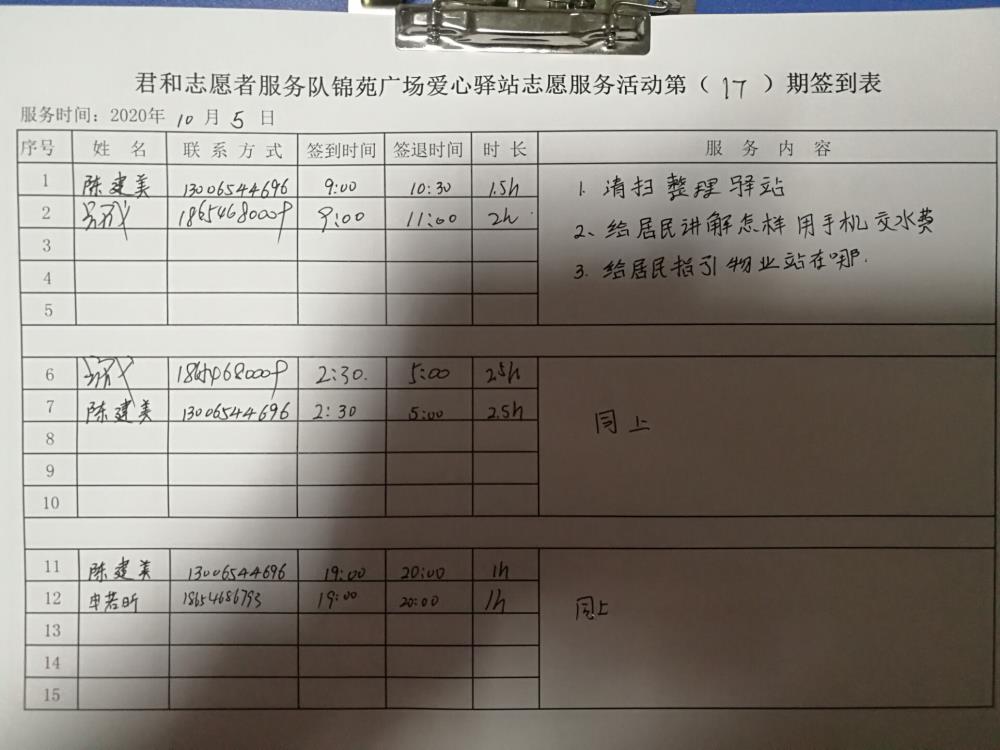 君和志愿者服务队锦苑广场爱心驿站志愿服务活动第（17）期签到表
服务时间：2020年 10 月 5 日
序号 姓 名 联 系 方 式 签到时间 签退时间 时 长 服 务 内 容
1 陈建美 13006544696 9:00 10:30 1.5h 1. 清扫整理驿站
2 18654680009 9:00 11:00 2h 2、给居民讲解怎样用手机交水费
3 3. 给居民指引物业站在哪.
4
5
6 18654680009 2:30. 5:00 2.5h
7 陈建美 13006544696 2:30 5:00 2.5h 同上
8
9
10
11 陈建美 13006544696 19:00 20:00 1h
12 申若昕 18654686793 19:00 20:00 1h 同上
13
14
15